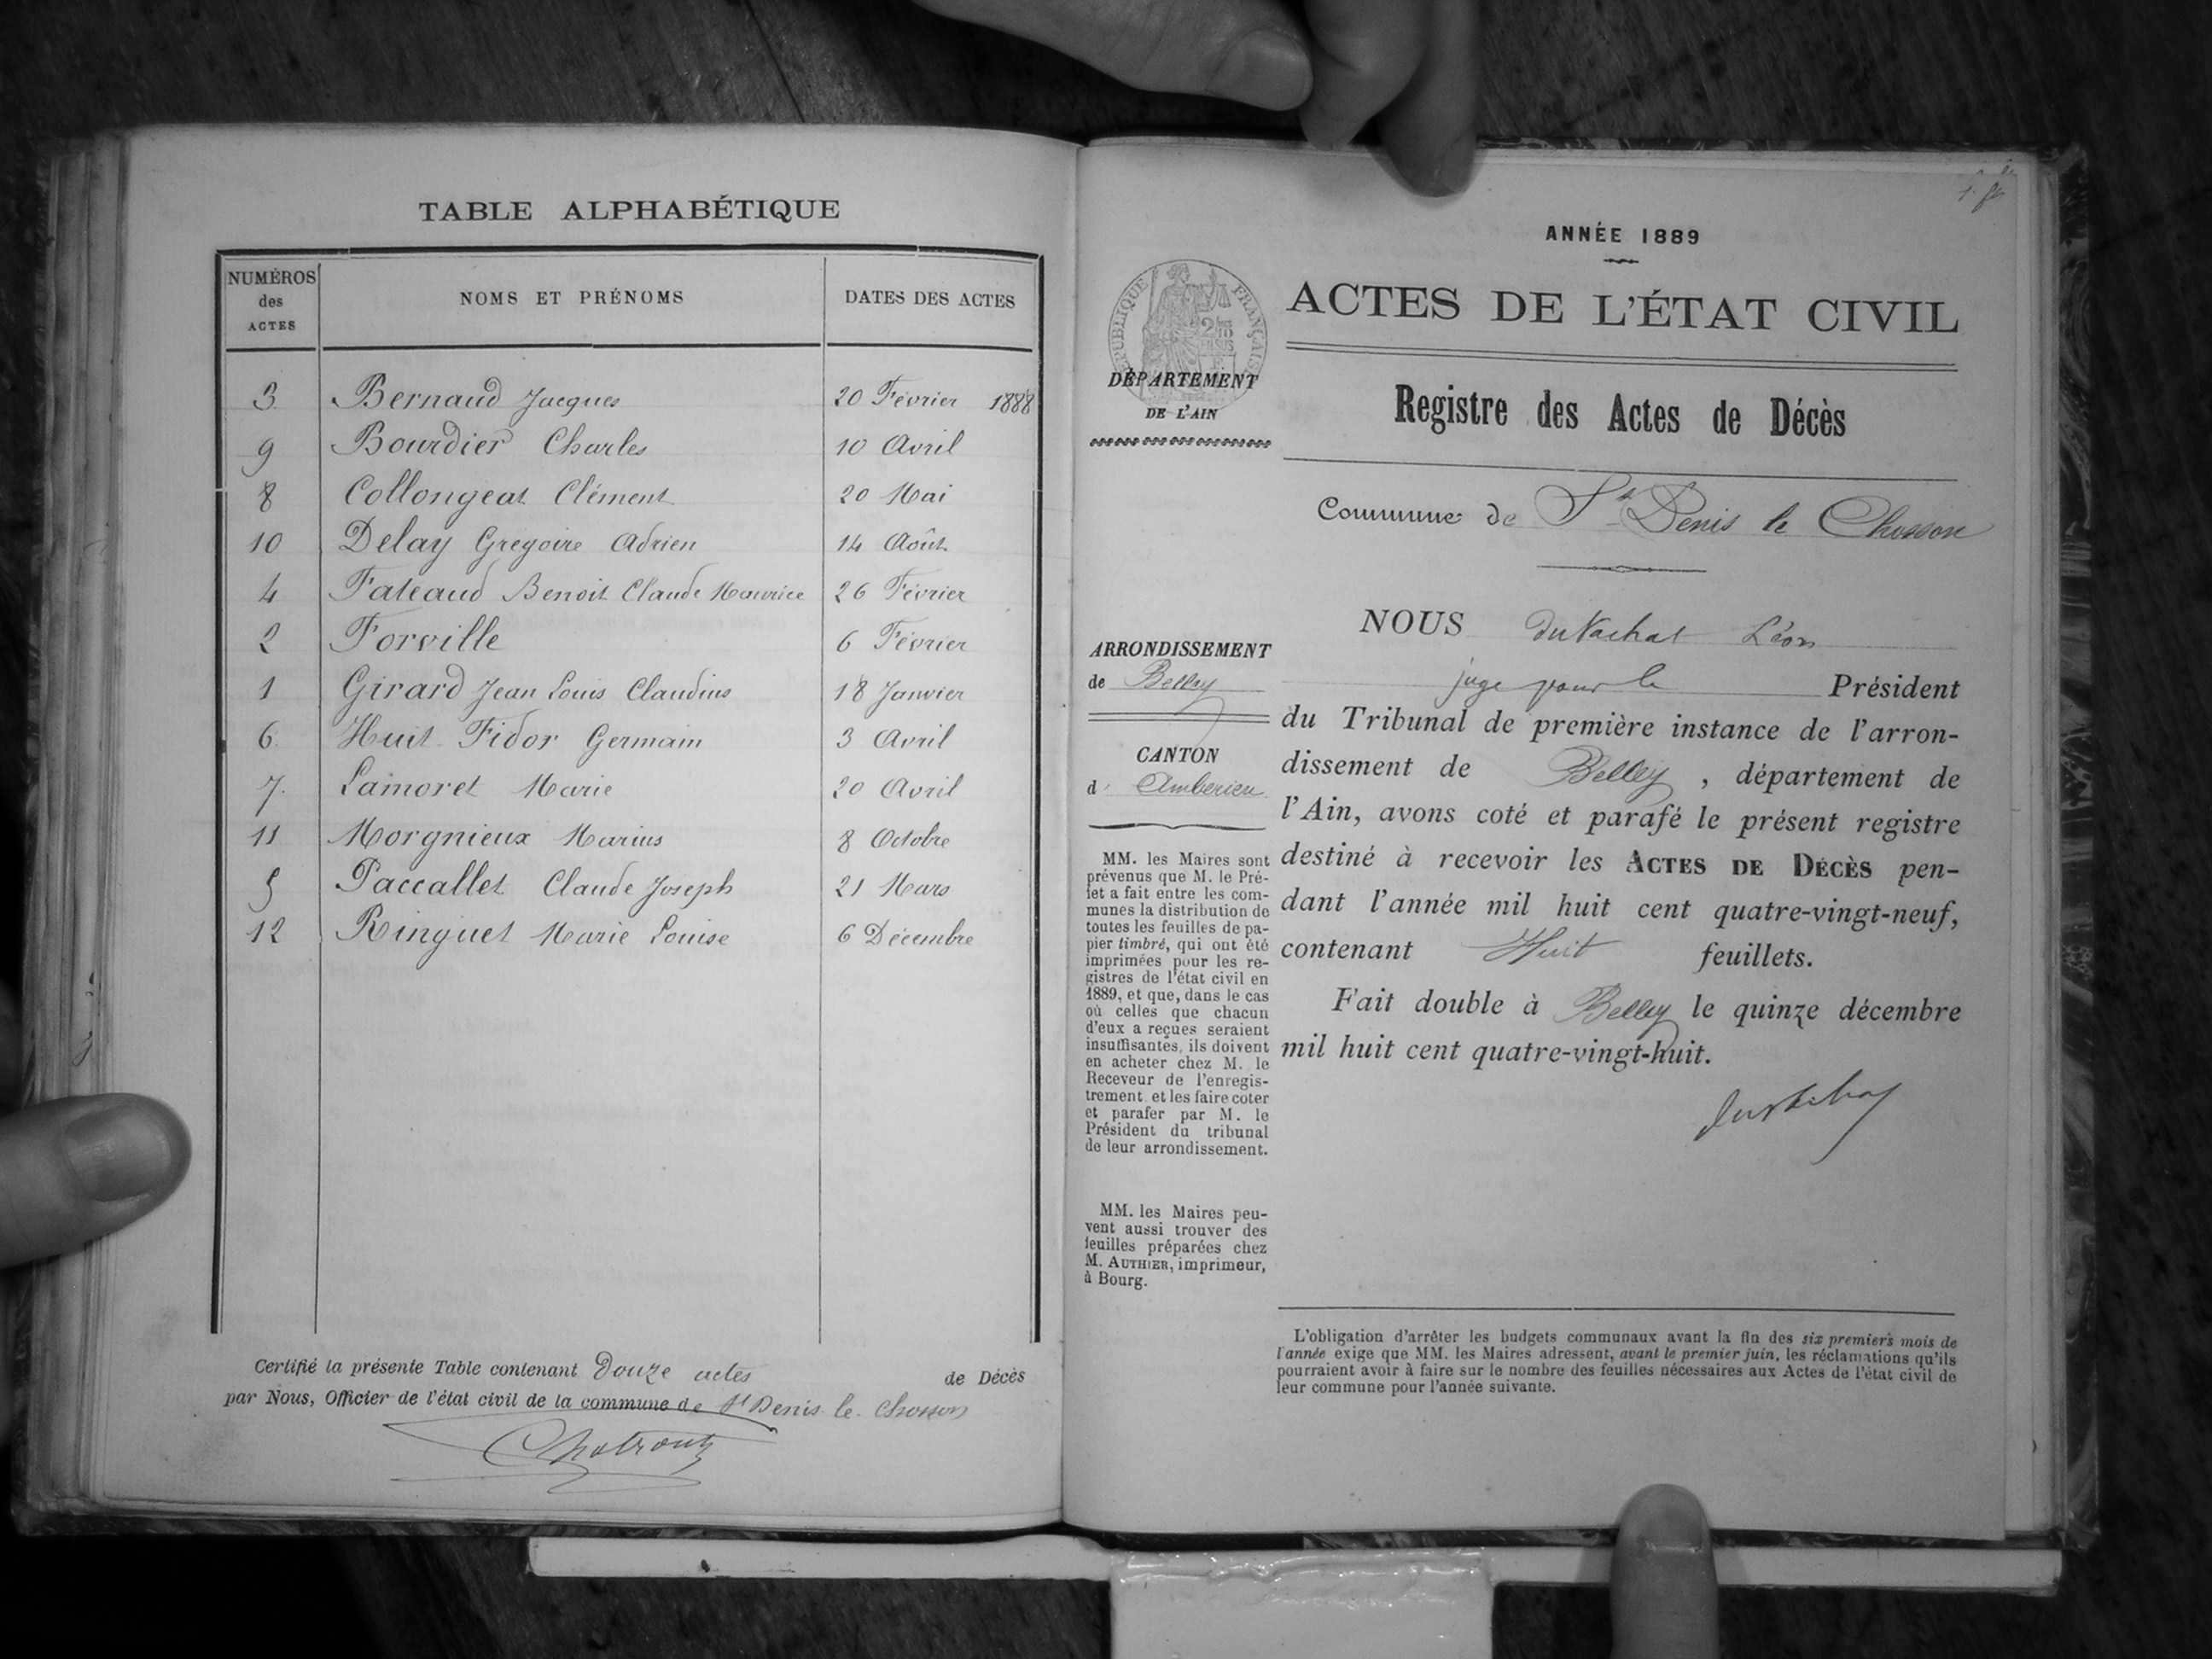 TABLE ALPHABÉTIQUE
NUMÉROS
des
ACTES
NOMS ET PRÉNOMS
DATES DES ACTES
3 Bernaud Jacques 20 Février 1888
9 Bourdier Charles 10 Avril
8 Collongeat Clément 20 Mai
10 Delay Gregoire Adrien 14 Août
4 Fateaud Benoit Claude Maurice 26 Février
2 Forville 6 Février
1 Girard Jean Louis Claudius 18 Janvier
6 Huit Fidor Germain 3 Avril
7. Lamoret Marie 20 Avril
11 Morgnieux Marius 8 Octobre
5 Paccallet Claude Joseph 21 Mars
12 Ringuet Marie Louise 6 Décembre
Certifié la présente Table contenant Douze actes de Décès
par Nous, Officier de l'état civil de la commune de St Denis le Chosson
ANNÉE 1889
ACTES DE L'ÉTAT CIVIL
Registre des Actes de Décès
Commune de St Denis le Chosson
RÉPUBLIQUE FRANÇAISE
DÉPARTEMENT
DE L'AIN
ARRONDISSEMENT
de Belley
CANTON
d' Amberieu
MM. les Maires sont
prévenus que M. le Pré-
fet a fait entre les com-
munes la distribution de
toutes les feuilles de pa-
pier timbré, qui ont été
imprimées pour les re-
gistres de l'état civil en
1889, et que, dans le cas
où celles que chacun
d'eux a reçues seraient
insuffisantes, ils doivent
en acheter chez M. le
Receveur de l'enregis-
trement et les faire coter
et parafer par M. le
Président du tribunal
de leur arrondissement.
MM. les Maires peu-
vent aussi trouver des
feuilles préparées chez
M. AUTHIER, imprimeur,
à Bourg.
NOUS Duvachat Léon
juge pour le Président
du Tribunal de première instance de l'arron-
dissement de Belley, département de
l'Ain, avons coté et parafé le présent registre
destiné à recevoir les ACTES DE DÉCÈS pen-
dant l'année mil huit cent quatre-vingt-neuf,
contenant Huit feuillets.
Fait double à Belley le quinze décembre
mil huit cent quatre-vingt-huit.
L'obligation d'arrêter les budgets communaux avant la fin des six premiers mois de
l'année exige que MM. les Maires adressent, avant le premier juin, les réclamations qu'ils
pourraient avoir à faire sur le nombre des feuilles nécessaires aux Actes de l'état civil de
leur commune pour l'année suivante.